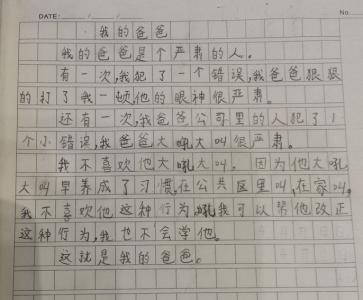 DATE: / / No
我的爸爸
我的爸爸是个严肃的人。
有一次,我犯了一个错误,我爸爸狠狠
的打了我一顿,他的眼神很严肃。
还有一次,我爸爸公司里的人犯了1
个小错误,我爸爸大吼大叫很严肃。
我不喜欢他大吼大叫。因为他大吼
大叫早养成了习惯,在公共区里叫,在家叫。
我不喜欢他这种行为,吼我可以帮他改正
这种行为,我也不会学他。
这就是我的爸爸。